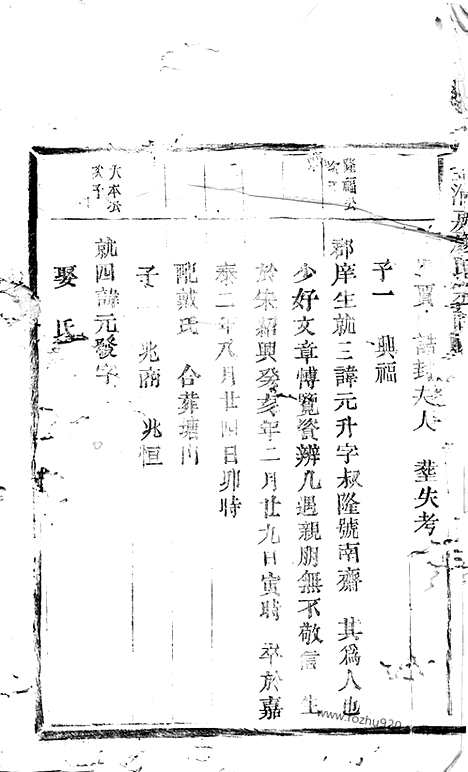 誥封夫人 塟失考
子一 興福
隆福公
郡庠生就三諱元升字叔隆號南齋 其爲人也
少好文章博覽資辨凡遇親朋無不敬信 生
於朱紹興癸亥年二月廿九日寅時 卒於嘉
泰二年八月廿四日卯時
配戴氏 合葬塘門
子 兆商 兆恒
大本公
次子
就四諱元發字
娶 氏
www.fozhu920.com